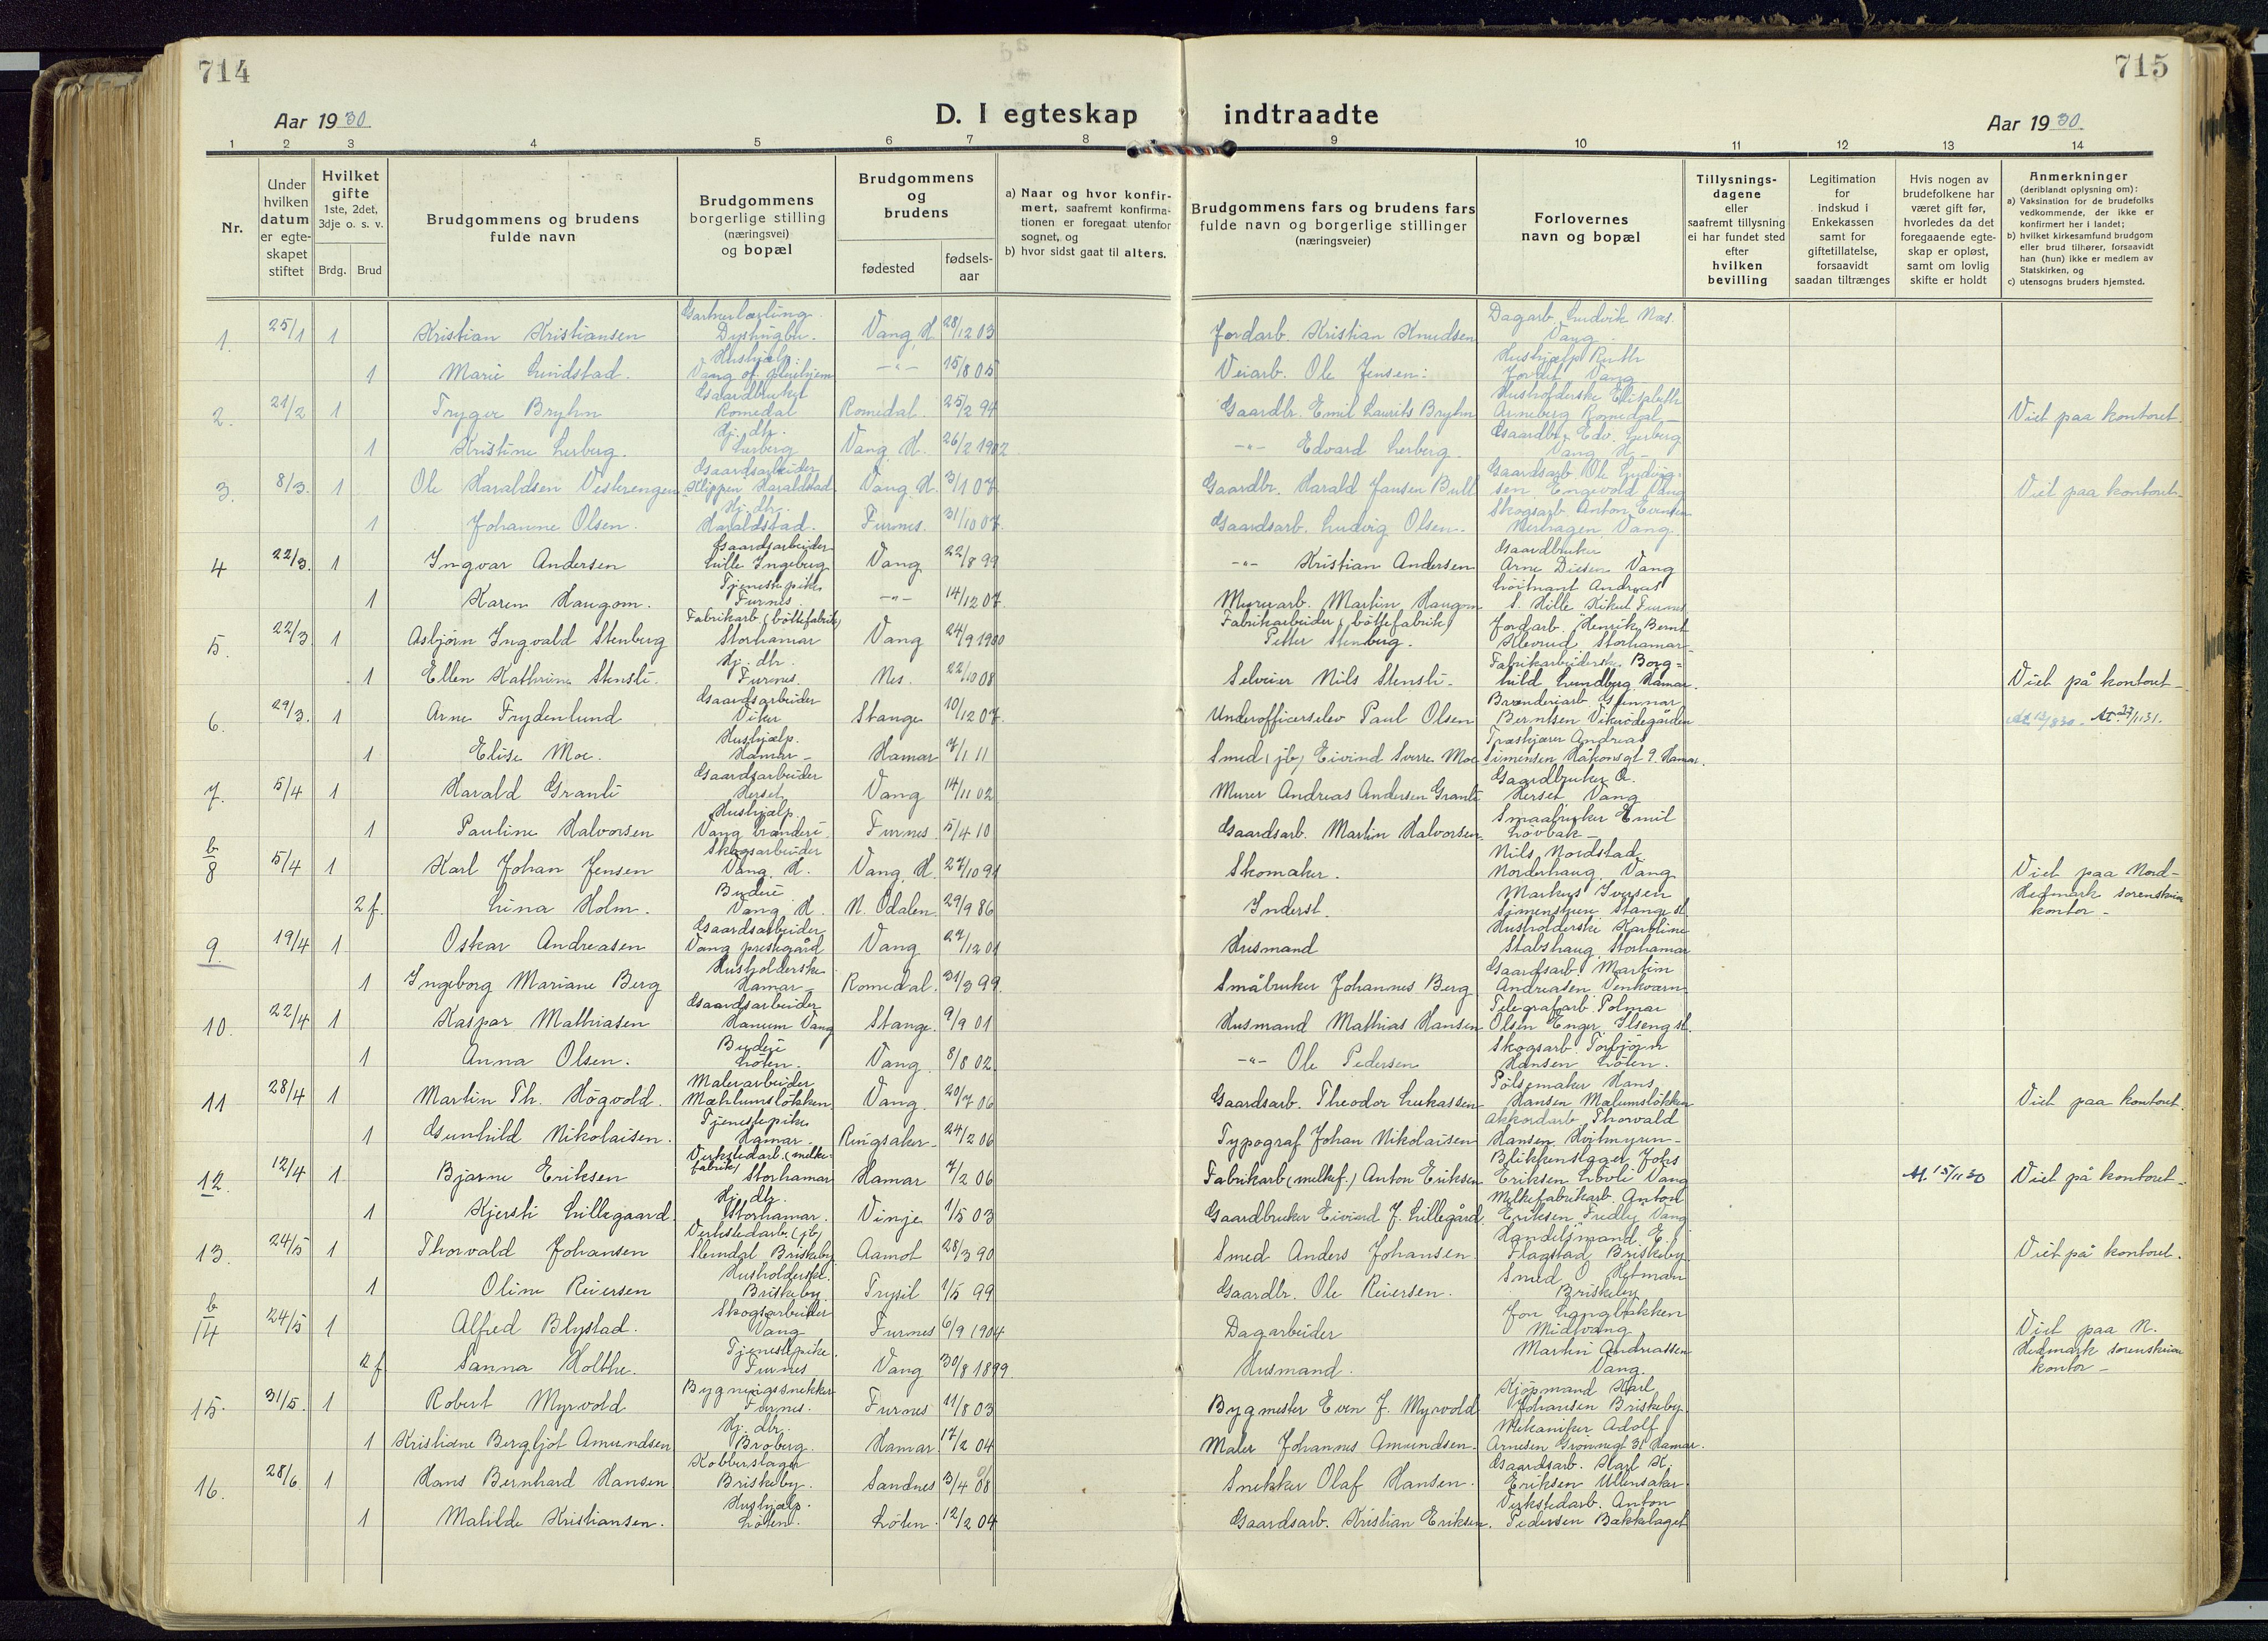 714
715
Aar 1930
D. I egteskap indtraadte
Aar 1930
1 2 3 4 5 6 7 8 9 10 11 12 13 14
Nr.
Under hvilken datum er egteskapet stiftet
Hvilket gifte 1ste, 2det, 3dje o. s. v.
Brdg. Brud
Brudgommens og brudens fulde navn
Brudgommens borgerlige stilling (næringsvei) og bopæl
Brudgommens og brudens
fødested
fødselsaar
a) Naar og hvor konfirmert, saafremt konfirmationen er foregaat utenfor sognet, og
b) hvor sidst gaat til alters.
Brudgommens fars og brudens fars fulde navn og borgerlige stillinger (næringsveier)
Forlovernes navn og bopæl
Tillysningsdagene eller saafremt tillysning ei har fundet sted efter hvilken bevilling
Legitimation for indskud i Enkekassen samt for giftetillatelse, forsaavidt saadan tiltrænges
Hvis nogen av brudefolkene har været gift før, hvorledes da det foregaaende egteskap er opløst, samt om lovlig skifte er holdt
Anmerkninger (deriblandt oplysning om):
a) Vaksination for de brudefolks vedkommende, der ikke er konfirmert her i landet;
b) hvilket kirkesamfund brudgom eller brud tilhører, forsaavidt han (hun) ikke er medlem av Statskirken, og
c) utensogns bruders hjemsted.
1. 25/1 1 Kristian Kristiansen Gartnerlærling. Dystingbu. Vang, H. 28/12 03 Jordarb. Kristian Knudsen Dagarb. Ludvik Næs. Vang.
1 Marie Lundstad. Hushjelp. Vang og pleiehjem -"- 15/8 05 Veiarb. Ole Jensen. Hushjelp Ruth Jordet Vang
2. 21/2 1 Trygve Bryhn Gaardbruker Romedal Romedal. 25/2 94 Gaardbr. Emil Laurits Bryhn Husholderske Elisabeth Arneberg Romedal Viet paa kontoret
1 Kristine Lerberg. Hj. dtr. Lerberg Vang, H. 26/2 1902 -"- Edvard Lerberg. Gaardbr. Edv. Lerberg Vang H.
3. 8/3. 1 Ole Haraldsen Vestrengen Gaardsarbeider Klippen Haraldstad Vang, H. 3/1 07 Gaardbr. Harald Jansen Bull Gaardsarb. Ole Ludvigsen Engevold Vang Viet paa kontoret
1 Johanne Olsen. Hj. dtr. Haraldstad. Furnes. 31/10 07 Gaardsarb. Ludvig Olsen. Skogsarb. Anton Evensen Nerhagen Vang.
4 22/3. 1 Ingvar Andersen Gaardsarbeider Lille Ingeberg Vang 22/8 99 -"- Kristian Andersen Gaardbruker Arne Diesen Vang
1 Karen Haugom. Tjenestepike Furnes -"- 14/12 07 Murarb. Martin Haugom Löitnant Andreas S. Hille Kikut Furnes
5. 22/3. 1 Asbjørn Ingvald Stenberg Fabrikarb (böttefabrik) Storhamar Vang 24/9 1900 Fabrikarbeider (böttefabrik) Petter Stenberg. Jordarb. Henrik Bernt Klevrud Storhamar
1 Ellen Kathrine Stensli. Hj. dtr. Furnes. Nes. 22/10 08 Selveier Nils Stensli Fabrikarbeiderske Borghild Lundberg Hamar. Viet på kontoret
6. 29/3. 1 Arne Frydenlund Gaardsarbeider Viker Stange 10/12 07 Underofficerselev Paul Olsen Brænderiarb. Gunnar Berntsen Vikerödegården 27/1 31.
1 Elise Moe. Hushjælp. Hamar Hamar 7/1 11 Smed (jb) Eivind Sverre Moe Træskjærer Andreas Simensen Håkonsgt 9. Hamar.
7. 5/4 1 Harald Granli Gaardsarbeider Herset Vang 14/11 02 Murer Andreas Andersen Granli Gaardbruker O. Herset Vang
1 Pauline Halvorsen Hushjælp Vang brænderi Furnes 5/4 10 Gaardsarb. Martin Halvorsen Smaabruker Emil Lövbak
b 8 5/4 1 Karl Johan Jensen Skogsarbeider Vang, H. Vang, H. 27/10 91 Skomaker. Nils Nordstad Norderhaug Vang Viet paa Nord-Hedmark sorenskriverkontor
2 f. Lina Holm. Buderi Vang H. N. Odalen 29/9 86 Inderst. Markus Iversen Simenstuen Stange st.
9. 19/4 1 Oskar Andreasen Gaardsarbeider Vang prestegård Vang 27/12 01 Husmand Husholderske Karoline Stabshaug Storhamar
1 Ingeborg Mariane Berg Husholderske Hamar Romedal. 31/3 99. Småbruker Johannes Berg Gaardsarb. Martin Andreasen Venkvarn
10. 22/4 1 Kaspar Mathiasen Gaardsarbeider Hanum Vang Stange. 9/9 01 Husmand Mathias Hansen Telegrafarb. Polmar Olsen Enger Ilseng st.
1 Anna Olsen. Buderi Löten. Vang. 8/8 02 -"- Ole Pedersen Skogsarb. Torbjörn Hansen Löten.
11 28/4 1 Martin Th. Högvold. Malerarbeider Mæhlumslökken Vang. 20/7 06 Gaardsarb. Theodor Lukassen Pölsemaker Hans Hansen Mælumslökken Viet paa kontoret.
1 Gunhild Nikolaisen. Tjenestepike Hamar. Ringsaker 24/2 06 Typograf Johan Nikolaisen Akkordarb. Thorvald Hansen Hvitmyren
12. 12/4 1. Bjarne Eriksen Verkstedarb. (melkefabrik) Storhamar Hamar 7/2 06 Fabrikarb (melkef.) Anton Eriksen Blikkenslager Johs Eriksen Libvli Vang 15/11 30 Viet på kontoret
1 Kjersti Lillegaard. Hj. dtr. Storhamar. Vinje 1/5 03 Gaardbruker Eivind J. Lillegård. Melkefabrikarb. Anton Eriksen Fredly Vang
13. 24/5 1 Thorvald Johansen Verkstedarb. (jb) Slemdal Briskeby Aamot 28/3 90 Smed Anders Johansen. Handelsmand E. Flagstad Briskeby Viet på kontoret.
1 Oline Reiersen Husholderske. Briskeby Trysil 1/5 99 Gaardbr. Ole Reiersen. Smed O Hetman Briskeby
b 14 24/5 1 Alfred Blystad. Skogsarbeider Vang Furnes 6/9 1904 Dagarbeider Jon Langbakken Midtvang Viet paa N. Hedmark sorenskriverkontor
2 f Sanna Holthe. Tjenestepike. Furnes Vang 30/8 1899. Husmand. Martin Andreassen Vang.
15. 31/5. 1 Robert Myrvold Bygningssnekker Furnes. Furnes 11/8 03 Bygmester Even J. Myrvold Kjöpmand Karl Johansen Briskeby.
1 Kristiane Bergljot Amundsen Hj. dtr. Broberg. Hamar 17/2 04 Maler Johannes Amundsen. Mekaniker Adolf Arnesen Grönnegt 31 Hamar.
16. 28/6. 1 Hans Bernhard Hansen Kobberslager Briskeby. Sandnes 3/4 08 Snekker Olaf Hansen. Gaardsarb. Karl K. Eriksen Ullensaker
1 Matilde Kristiansen. Hushjælp. Löten. Löten. 12/2 04 Gaardsarb. Kristian Eriksen. Verkstedarb. Anton Pedersen Bækkelaget